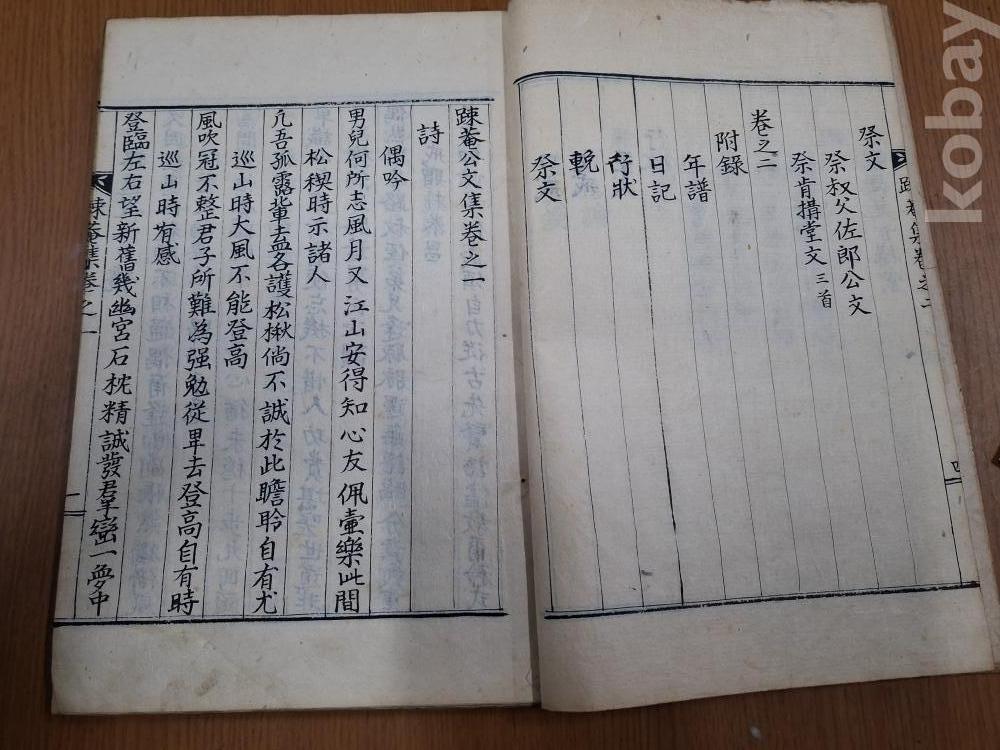 祭文
祭叔父佐郎公文
祭肯搆堂文 三首
卷之二
附錄
年譜
日記
行狀
輓
祭文
四
踈菴公文集卷之一
詩
偶吟
男兒何所志風月又江山安得知心友佩壷樂此間
松楔時示諸人
凢吾孤露輩盍各護松楸倘不誠於此瞻聆自有尤
巡山時大風不能登高
風吹冠不整君子所難為强勉從卑去登高自有時
巡山時有感
登臨左右望新舊幾幽宮石枕精誠發羣巒一夢中
踈菴集卷之一
一
kobay